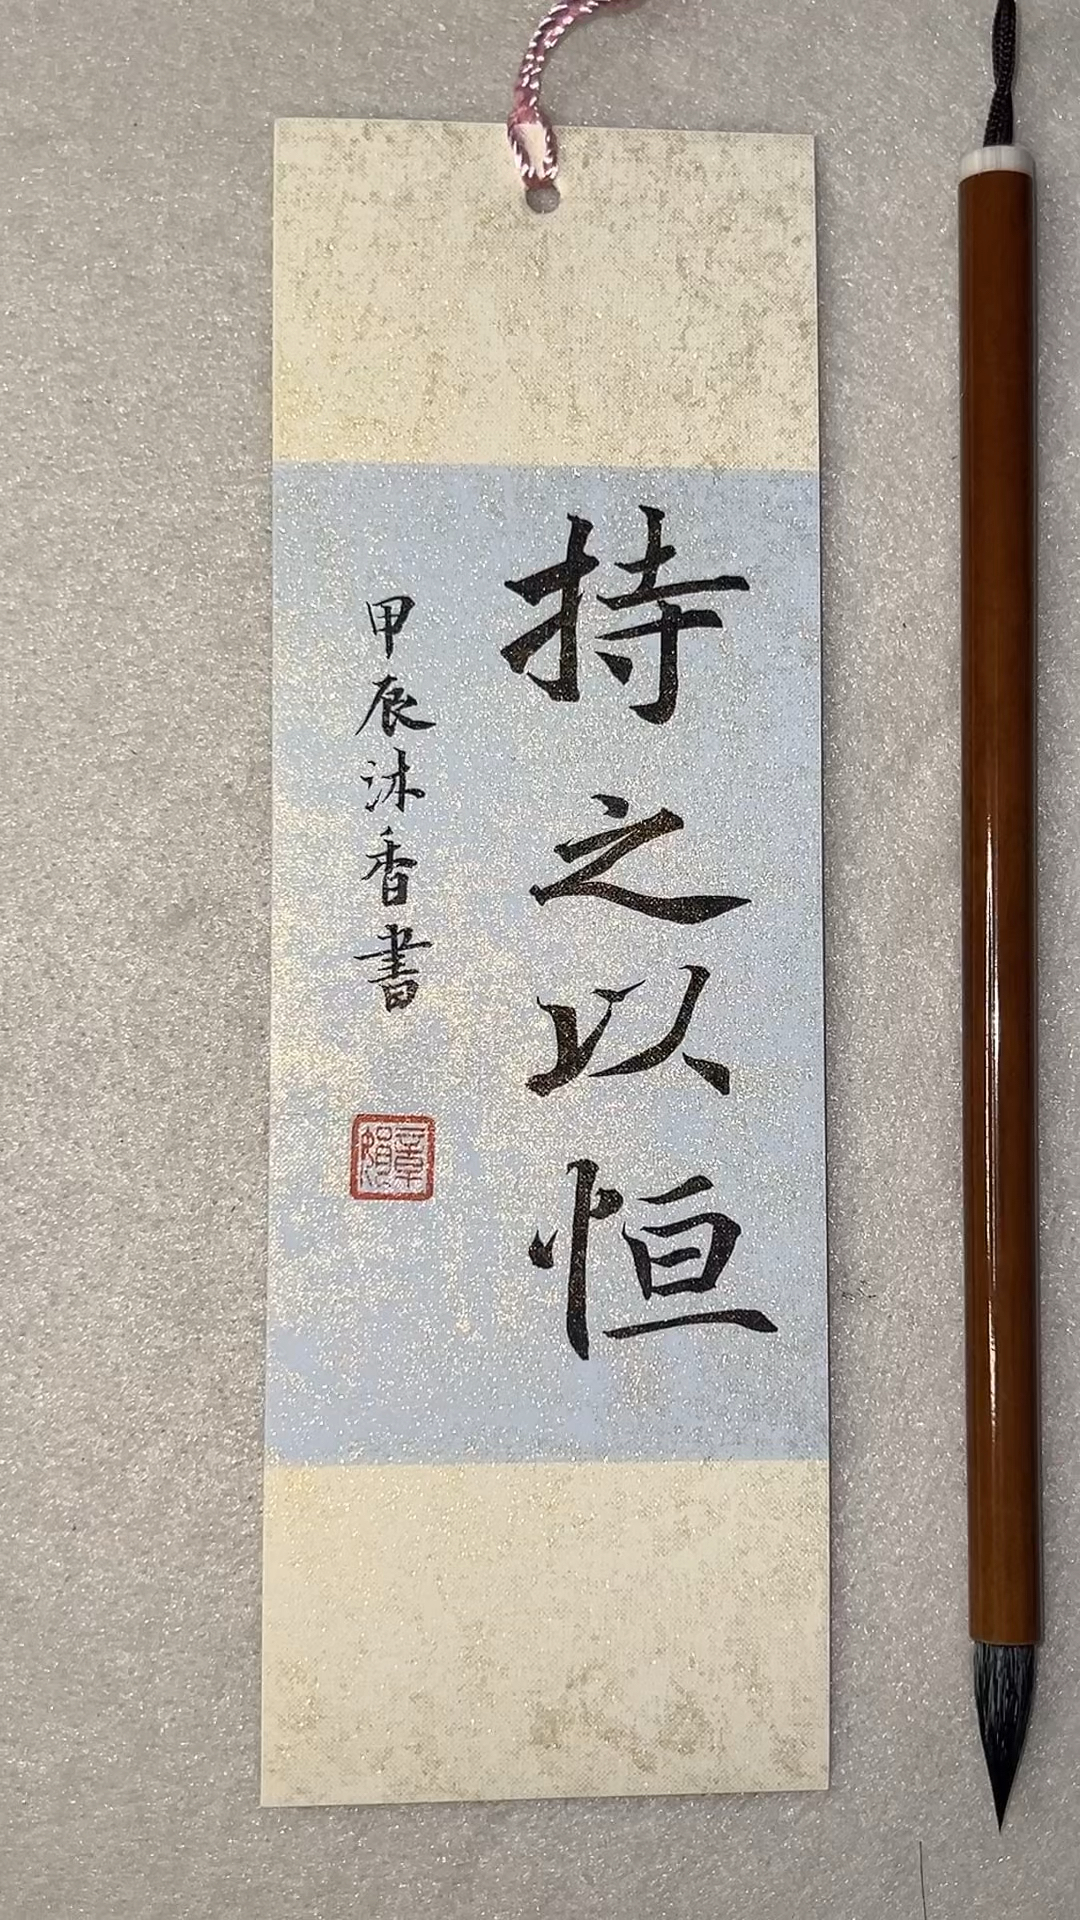 持之以恒
甲辰沐香書